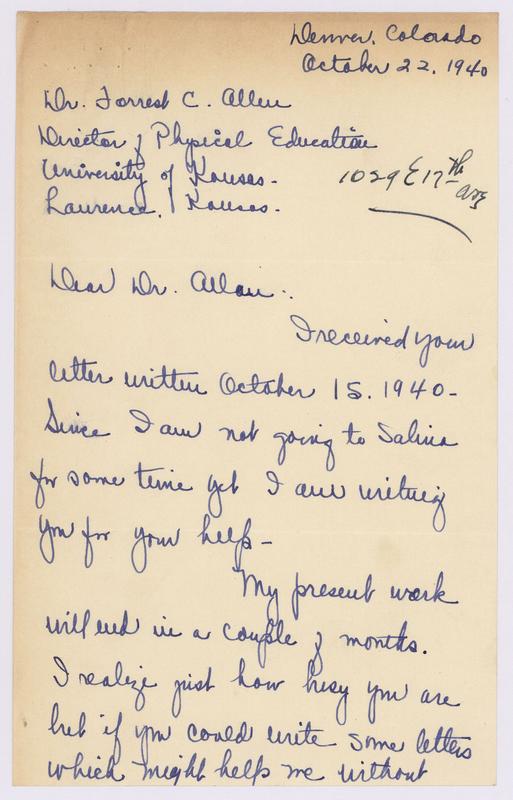 Denver, Colorado
October 22, 1940
Dr. Forrest C. Allen
Director of Physical Education
University of Kansas -
Lawrence, Kansas -
1029 E 17th Ave
Dear Dr. Allen:
I received your
letter written October 15, 1940 -
Since I am not going to Salina
for some time yet I am writing
you for your help -
My present work
will end in a couple of months.
I realize just how busy you are
but if you could write some letters
which might help me without